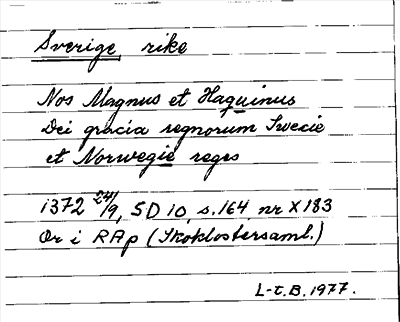 Sverige, rike
Nos Magnus et Haquinus
Dei gracia regnorum Swecie
et Norwegie reges
1372 24/9, SD 10, s.164 nr X183
Or i RAp (Skoklostersaml.)
L-t.B.1977.